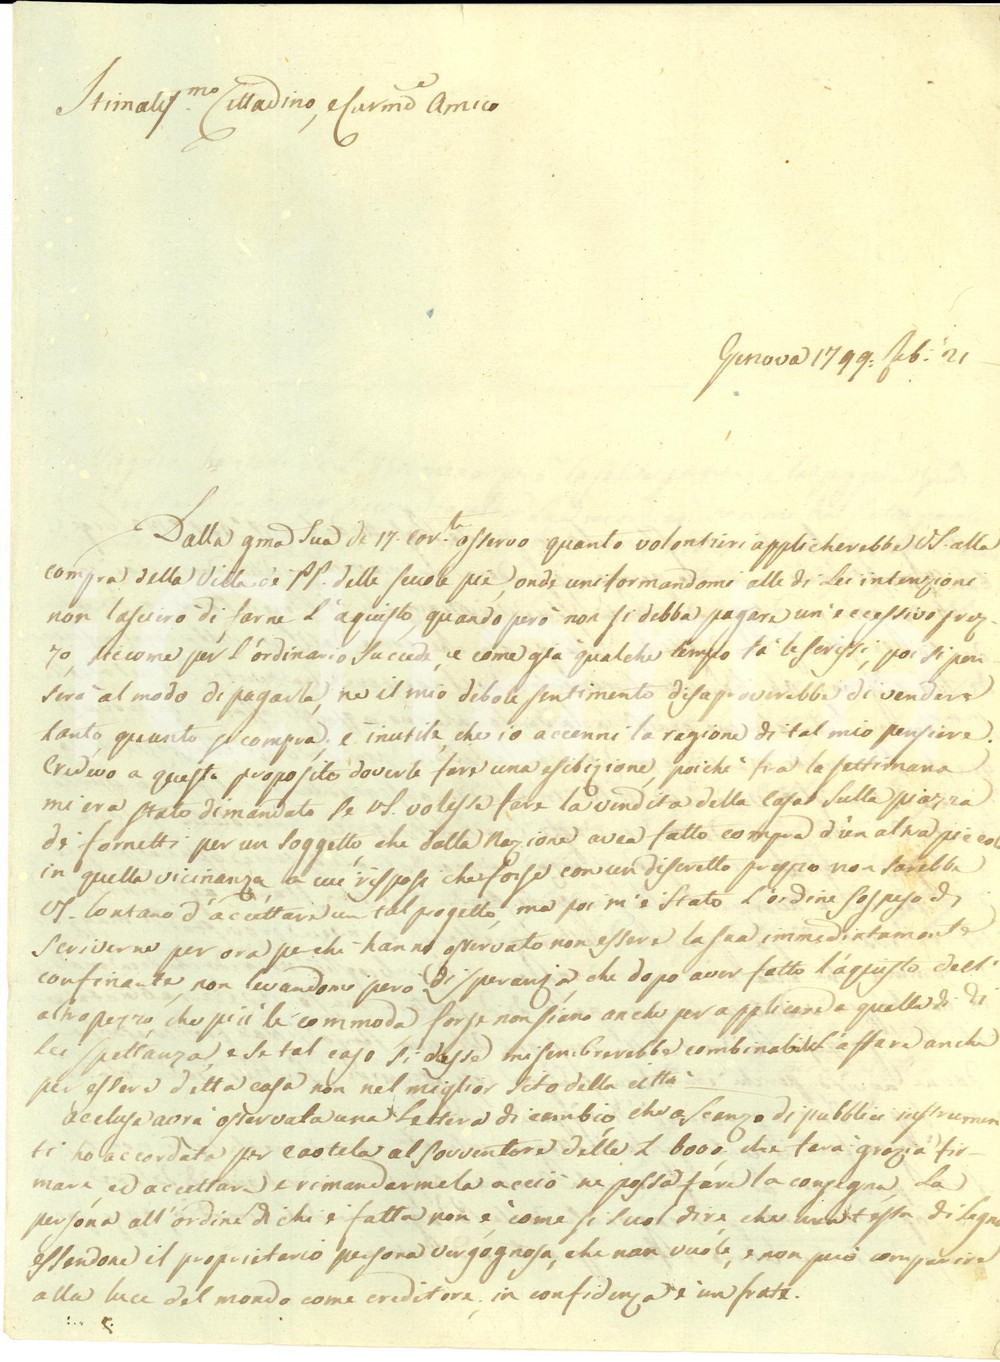 Stimatis.mo Cittadino, e Carmo Amico
Genova 1799: feb: 21
Dalla gma Sua de 17. cor.te osservo quanto volontieri applicherebbe VS. alla
compra della Villa de PP. delle scuole pie, onde uniformandomi alle di Lei intenzioni
non lascierò di farne l'aquisto, quando però non si debba pagare un'eccessivo prez-
zo, siccome per l'ordinario succede, e come già qualche tempo fà le scrissi, poi si pen
serà al modo di pagarla, ne il mio debole sentimento disaproverebbe di vendere
tanto quanto si compra, è inutile che io accenni la ragione di tal mio pensiere.
Credevo a questo proposito doverle fare una esibizione, poiche fra la settimana
mi era stato dimandato se VS. volesse fare la vendita della Casa sulla piazza
de fornetti per un soggetto che dalla Nazione avea fatto compra d'un altra piccol
in quella vicinanza, a cui risposi che forse con un discretto prezzo non sarebbe
VS. lontano d'accettare un tal progetto, ma poi m'è stato l'ordine sospeso di
scriverne per ora perche hanno osservato non essere la sua immediatamente
confinante, non levandomi però di speranza, che dopo aver fatto l'aquisto dell'
altro pezzo, che più le commoda forse non siano anche per applicare a quella di
Lei spettanza, e se tal caso si dasse mi sembrerebbe combinabile l'affare anche
per essere detta casa non nel miglior sito della città
Acclusa avrà osservata una Lettera di cambio, che a scanzo di pubblici instrumen
ti ho accordata per cautela al sovventore delle L 6000, che farà grazia fir-
mare, ed accettare e rimandarmela acciò ne possa fare la consegna. La
persona all'ordine di chi è fatta non è come si suol dire che una testa di legno
essendone il proprietario persona vergognosa, che non vuole, e non può comparire
alla luce del mondo come creditore, in confidenza è un frate.